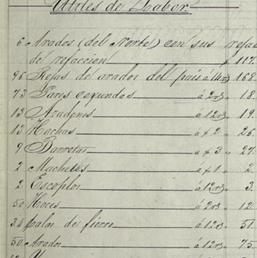 Utiles de Labor
6 Arados (del Norte) con sus
de refaccion $117
96 Rejas de arador del pais á 14 rs 168
72 Pares coyundas á 2 rs 18
13 Azadones á 12 rs 19
13 Hachas á $ 2 26
9 Barretas á $ 3 27
2 Machetes á $ 1 2
2 Escoplos á 12 rs 3
50 Hoces á 2 rs 12
palas de fierro á 12 rs 51
50 Arados á 12 rs 75